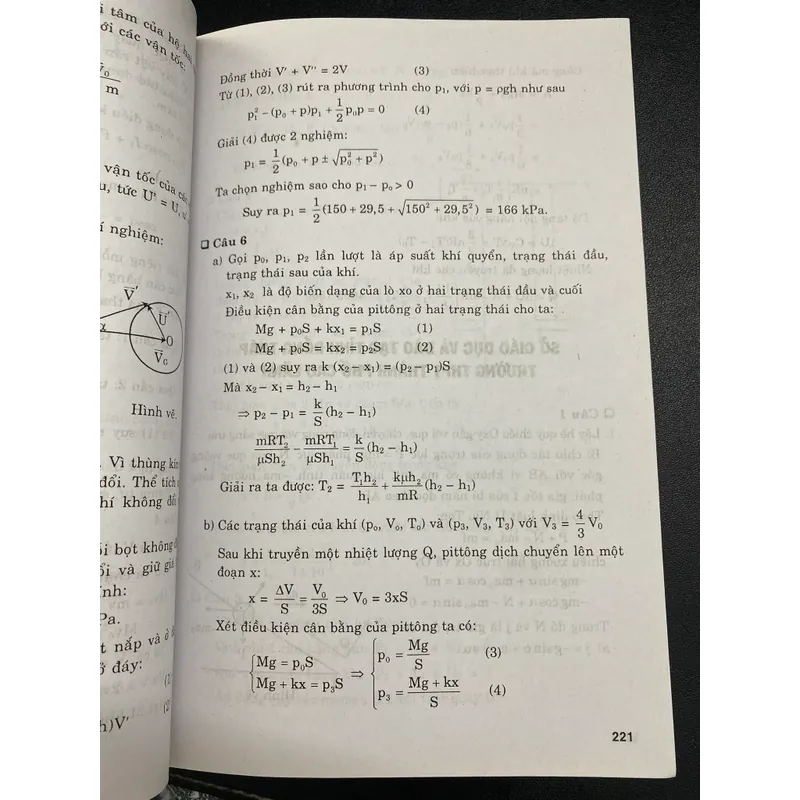 i tâm của hệ
với các vận tốc:
m
vận tốc của
tức U' = U,
í nghiệm:
V'
U'
O
V_G
Hình vẽ.
. Vì thùng kín
đổi. Thể tích
hí không đổi
bọt không
ổi và giữ
ính:
Pa.
nắp và ở
ở đáy:
(1
(2
h)V'
Đồng thời V' + V'' = 2V (3)
Từ (1), (2), (3) rút ra phương trình cho p₁, với p = ρgh như sau
p₁² – (p₀ + p)p₁ + 1/2 p₀p = 0 (4)
Giải (4) được 2 nghiệm:
p₁ = 1/2 (p₀ + p ± √(p₀² + p²))
Ta chọn nghiệm sao cho p₁ – p₀ > 0
Suy ra p₁ = 1/2 (150 + 29,5 + √(150² + 29,5²)) = 166 kPa.
❑ Câu 6
a) Gọi p₀, p₁, p₂ lần lượt là áp suất khí quyển, trạng thái đầu,
trạng thái sau của khí.
x₁, x₂ là độ biến dạng của lò xo ở hai trạng thái đầu và cuối
Điều kiện cân bằng của pittông ở hai trạng thái cho ta:
Mg + p₀S + kx₁ = p₁S (1)
Mg + p₀S = kx₂ = p₂S (2)
(1) và (2) suy ra k (x₂ – x₁) = (p₂ – p₁)S
Mà x₂ – x₁ = h₂ – h₁
⇒ p₂ – p₁ = k/S (h₂ – h₁)
mRT₂/μSh₂ – mRT₁/μSh₁ = k/S (h₂ – h₁)
Giải ra ta được: T₂ = T₁h₂/h₁ + kμh₂/mR (h₂ – h₁)
b) Các trạng thái của khí (p₀, V₀, T₀) và (p₃, V₃, T₃) với V₃ = 4/3 V₀
Sau khi truyền một nhiệt lượng Q, pittông dịch chuyển lên một
đoạn x:
x = ΔV/S = V₀/3S ⇒ V₀ = 3xS
Xét điều kiện cân bằng của pittông ta có:
{Mg = p₀S ⇒ {p₀ = Mg/S (3)
{Mg + kx = p₃S {p₃ = (Mg + kx)/S (4)
221